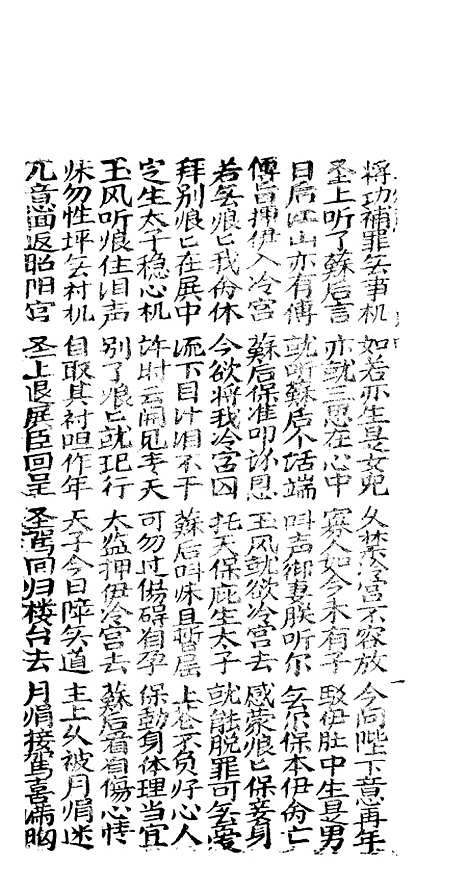 将功補罪矣事机 如若亦生是女兒 久禁冷宫不容放 今向陛下意再年
圣上听了蘇后言 亦就三思在心中 寡人如今未有子 驳伊肚中生是男
日后江山亦有傅 就听蘇后个話端 叫声御妻朕听尔 矣尔保本伊免亡
傅旨押伊入冷宫 蘇后保准叩谢恩 玉风就欲冷宫去 感蒙痕匕保妾身
若矣痕匕我免休 今欲将我冷宫囚 托天保庇生太子 就能脱罪可矣憂
拜别痕匕在展中 流下目汁泪不干 蘇后叫妹且暂屈 上苍不负好心人
定生太子稳心机 許时云開見青天 可勿过傷碍自孕 保動身体理当宜
玉风听痕住泪声 别了痕匕就起行 太监押伊冷宫去 蘇后看自傷心情
妹勿性坪矣村机 自取其村呾作年 天子今日障矣道 主上久被月娟迷
意面返昭阳宫 圣上退展臣回呈 圣驾回归楼台去 月娟接驾喜满胸